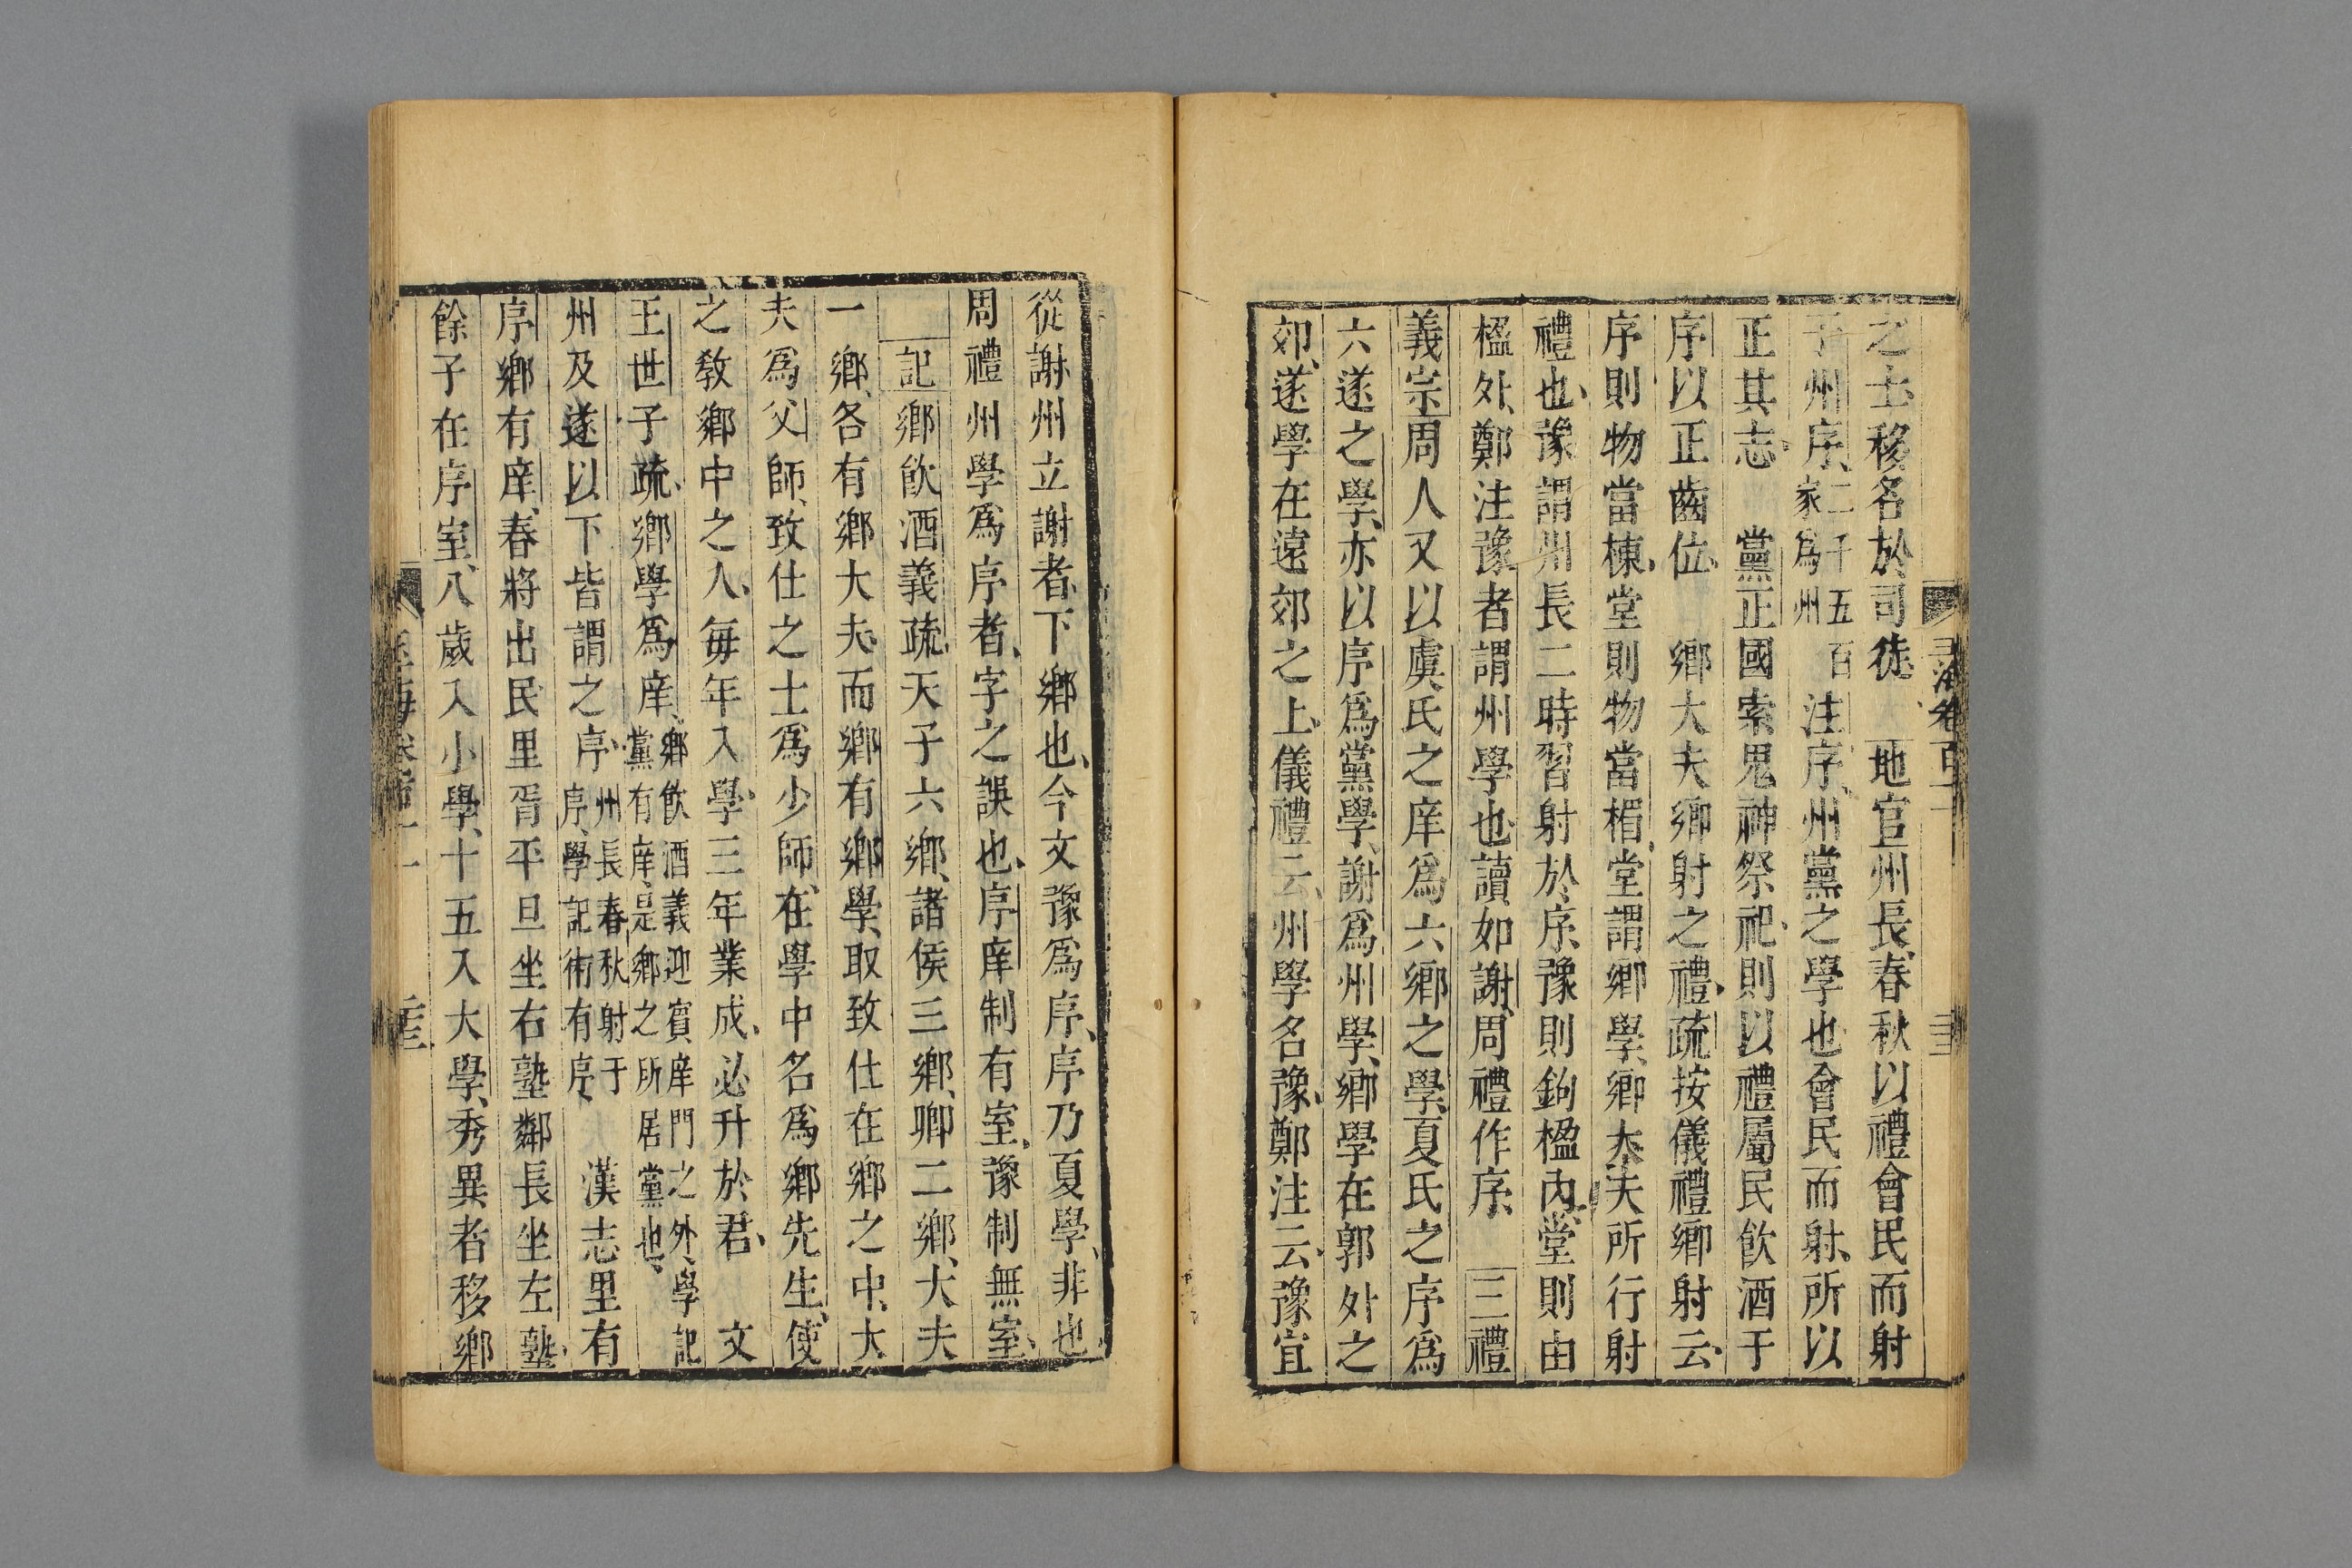 之士移名於司徒 地官州長春秋以禮會民而射
于州序二千五百家爲州注序州黨之學也會民而射所以
正其志 黨正國索鬼神祭祀則以禮屬民飮酒于
序以正齒位 鄉大夫鄉射之禮疏按儀禮鄉射云
序則物當棟堂則物當楣堂謂鄉學鄉大夫所行射
禮也豫謂州長二時習射於序豫則鉤楹內堂則由
楹外鄭注豫者謂州學也讀如謝周禮作序 三禮
義宗周人又以虞氏之庠爲六鄉之學夏氏之序爲
六遂之學亦以序爲黨學謝爲州學鄉學在郭外之
郊遂學在遠郊之上儀禮云州學名豫鄭注云豫宜
從謝州立謝者下鄉也今文豫爲序序乃夏學非也
周禮州學爲序者字之誤也序庠制有室豫制無室
記鄉飮酒義疏天子六鄉諸侯三鄉卿二鄉大夫
一鄉各有鄉大夫而鄉有鄉學取致仕在鄉之中大
夫爲父師致仕之士爲少師在學中名爲鄉先生使
之敎鄉中之人每年入學三年業成必升於君 文
王世子疏鄉學爲庠鄉飮酒義迎賓庠門之外學記黨有庠是鄉之所居黨也
州及遂以下皆謂之序州長春秋射于序學記術有序 漢志里有
序鄉有庠春將出民里胥平旦坐右塾鄰長坐左塾
餘子在序室八歲入小學十五入大學秀異者移鄉